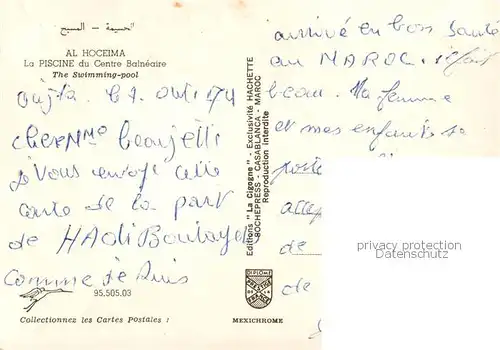 الحسيمة - المسبح
AL HOCEIMA
La PISCINE du Centre Balnéaire
The Swimming-pool
oujta. le
chere Mme
je vous envoyé cette
carte de la part
de HADi
comme je suis
95.505.03
Collectionnez les Cartes Postales :
Editions "La Cigogne" - Exclusivité HACHETTE
SOCHEPRESS - CASABLANCA - MAROC
Reproduction interdite
DIPLOME
PRESTIGE
MEXICHROME
arrivé en bon santé
au MAROC. il fait
beau. Ma femme
et mes enfants se
de
de
privacy protection
Datenschutz